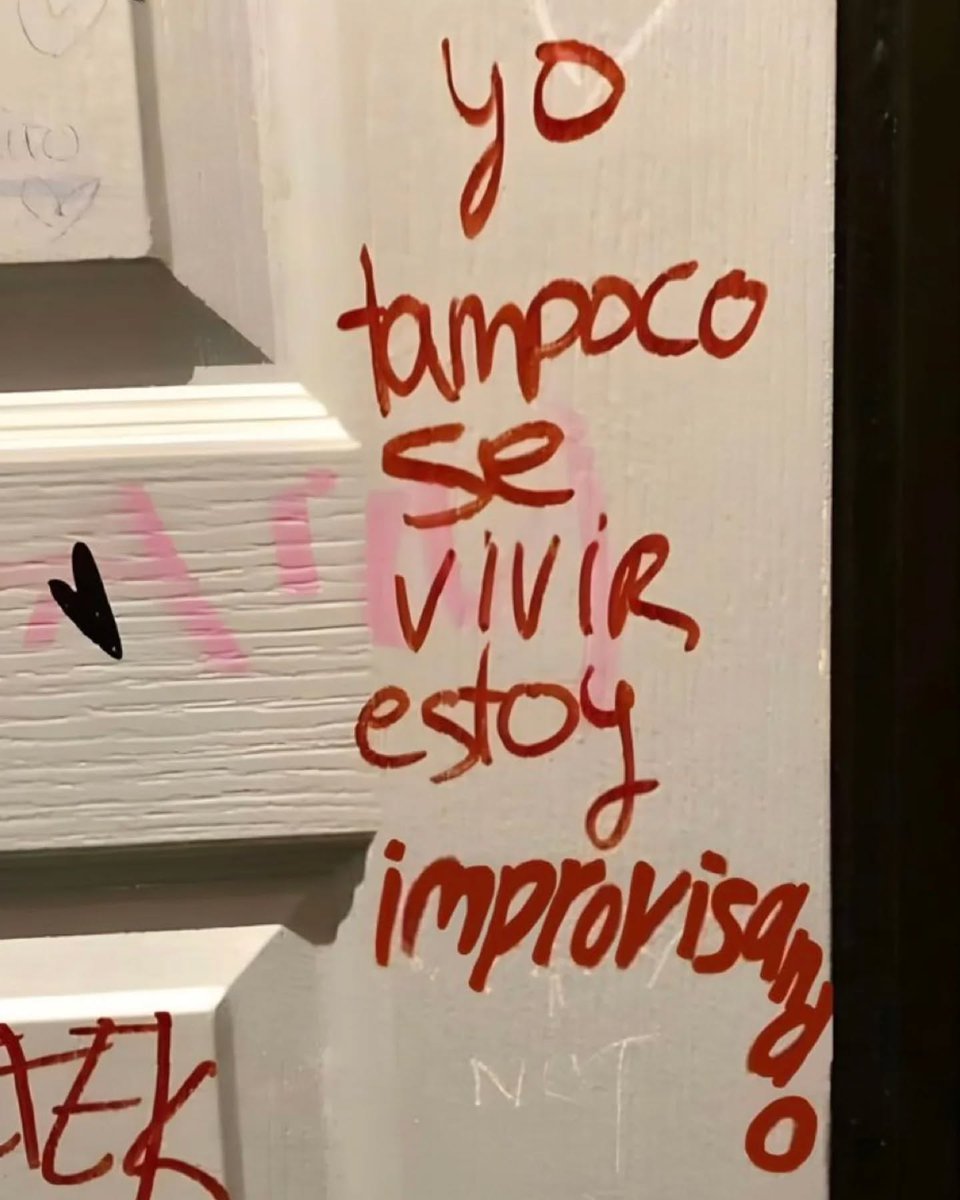 yo
tampoco
se
vivir
estoy
improvisando
NCT